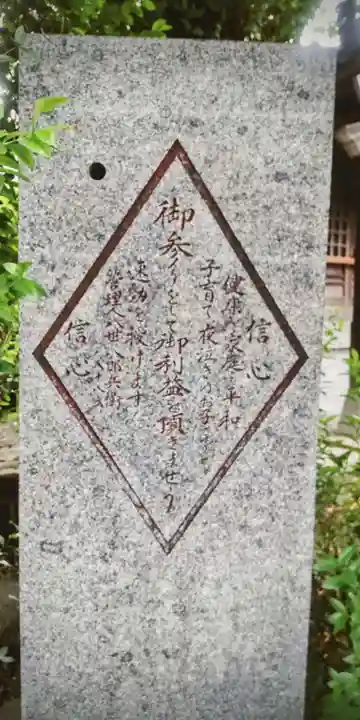 信心
健康と家庭の平和
子育て夜泣きのお子さま
御参りをして御利益を頂きませう
速効を授けます
管理人八世八郎兵衛
信心